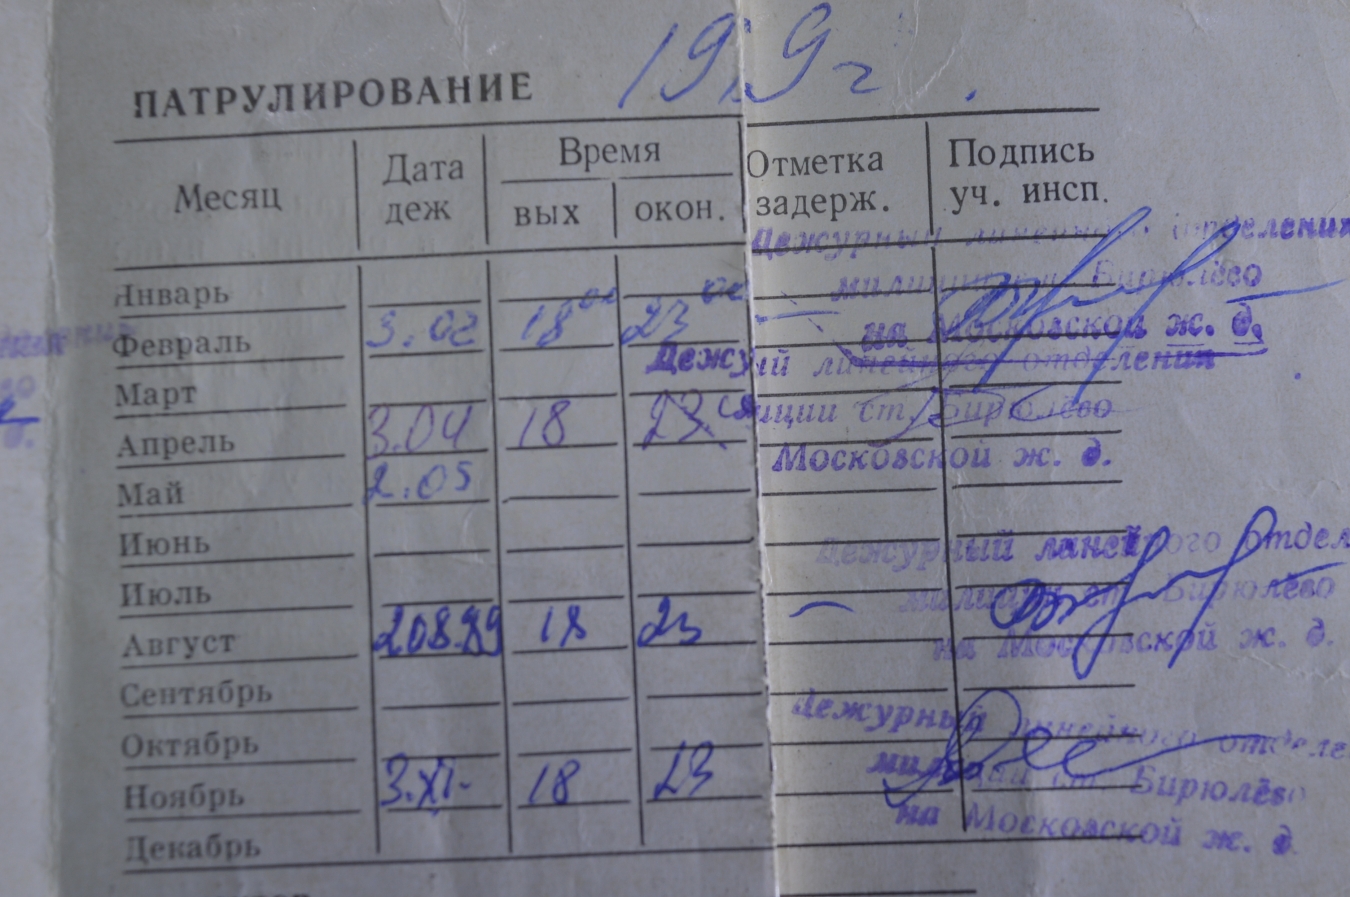 ПАТРУЛИРОВАНИЕ 19 9 г.
Месяц Дата деж Время вых окон. Отметка задерж. Подпись уч. инсп.
Дежурный линейного отделения
Январь
милиции ст. Бирюлёво
Февраль 3.02 18⁰⁰ 23⁰⁰ —
на Московской ж. д.
Март
Дежурный линейного отделения
милиции ст. Бирюлёво
Апрель 3.04 18 23
Московской ж. д.
Май 2.05
Июнь
Дежурный линейного отдел
Июль
милиции ст. Бирюлёво
Август 2.08.89 18 23 —
на Московской ж. д.
Сентябрь
Дежурный линейного отделе
Октябрь
милиции ст. Бирюлёво
Ноябрь 3.XI- 18 23
на Московской ж. д.
Декабрь